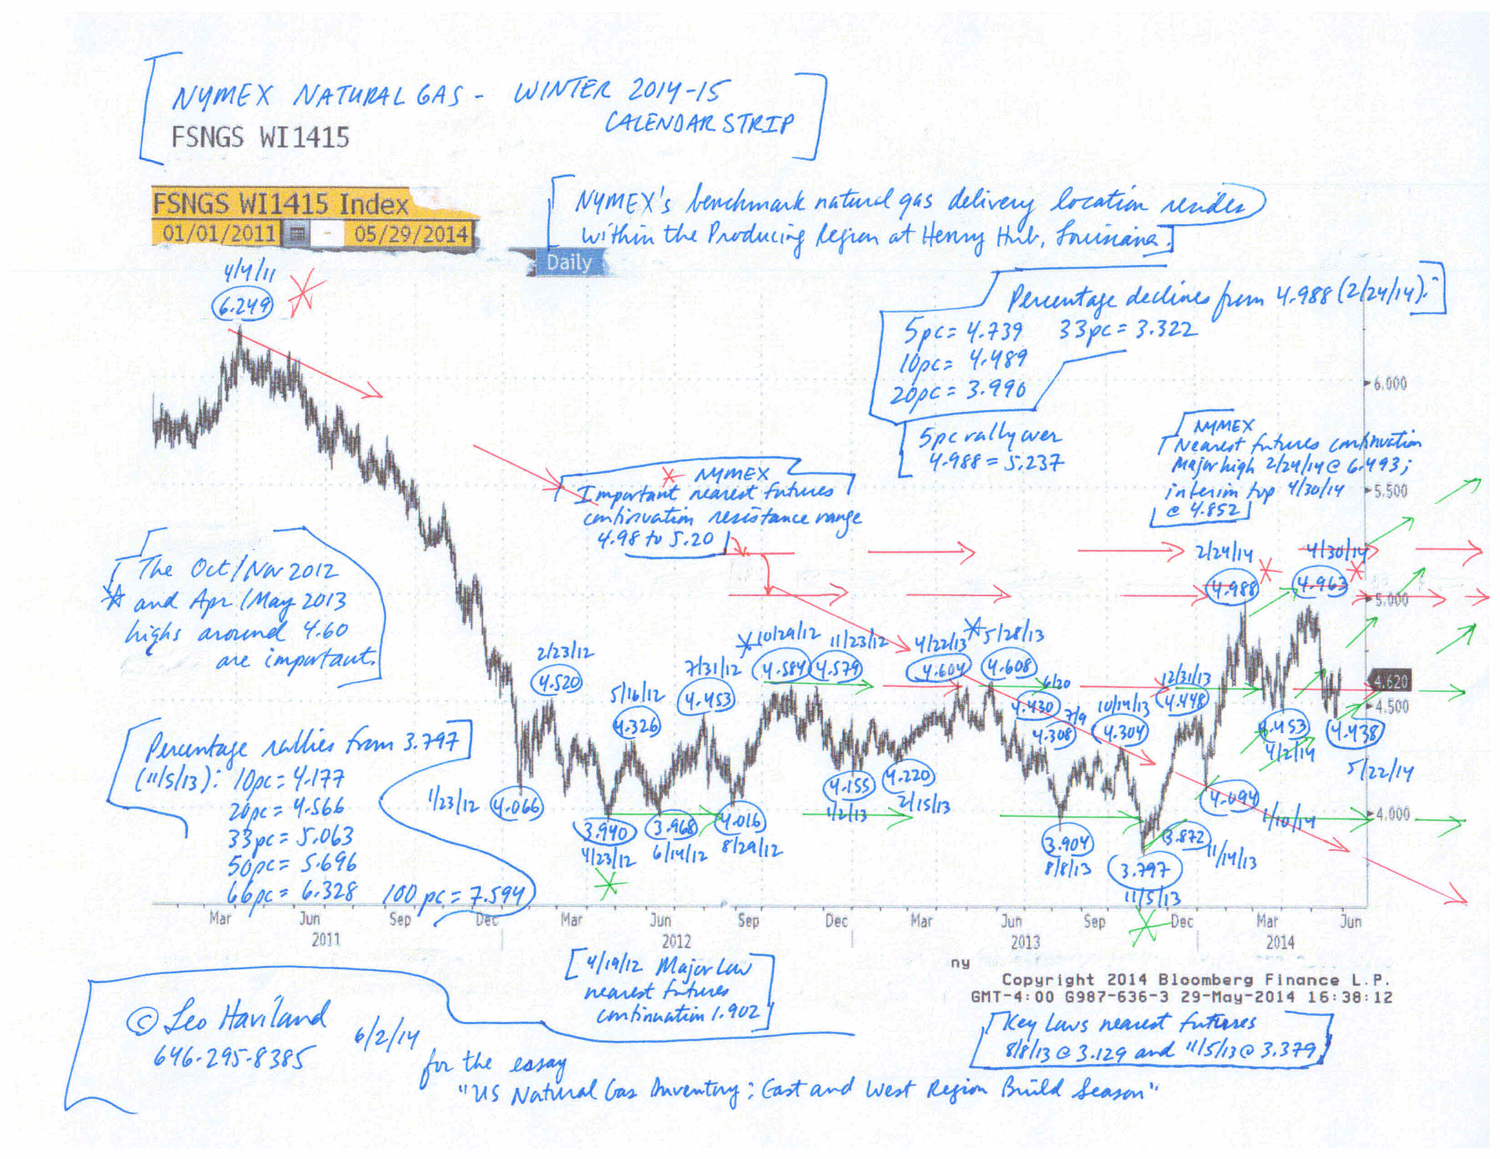 NYMEX NATURAL GAS - WINTER 2014-15
CALENDAR STRIP
FSNGS WI1415
FSNGS WI1415 Index
01/01/2011 - 05/29/2014
Daily
NYMEX's benchmark natural gas delivery location resides
within the Producing Region at Henry Hub, Louisiana.
4/4/11
6.249
Percentage declines from 4.988 (2/24/14):
5pc = 4.739 33pc = 3.322
10pc = 4.489
20pc = 3.990
5pc rally over
4.988 = 5.237
NYMEX
Nearest futures continuation
Major high 2/24/14 @ 6.493;
interim top 4/30/14
@ 4.852
NYMEX
Important nearest futures
continuation resistance range
4.98 to 5.20
The Oct/Nov 2012
and Apr/May 2013
highs around 4.60
are important.
2/24/14
4.988
4/30/14
4.963
2/23/12
4.520
5/16/12
4.326
7/31/12
4.453
10/29/12
4.584
11/23/12
4.579
4/22/13
4.604
5/28/13
4.608
6/20
4.430
7/9
4.308
10/14/13
4.304
12/31/13
4.448
4.453
4/2/14
4.438
5/22/14
6.000
5.500
5.000
4.620
4.500
4.000
Percentage rallies from 3.797
(11/5/13): 10pc = 4.177
20pc = 4.566
33pc = 5.063
50pc = 5.696
66pc = 6.328 100pc = 7.594
1/23/12
4.066
3.940
4/23/12
3.968
6/14/12
4.016
8/29/12
4.155
1/2/13
4.220
2/15/13
3.904
8/8/13
3.797
11/5/13
3.872
11/14/13
4.094
1/10/14
Mar Jun Sep Dec Mar Jun Sep Dec Mar Jun Sep Dec Mar Jun
2011 2012 2013 2014
4/19/12 Major Low
nearest futures
continuation 1.902
ny
Copyright 2014 Bloomberg Finance L.P.
GMT-4:00 G987-636-3 29-May-2014 16:38:12
Key Lows nearest futures
8/8/13 @ 3.129 and 11/5/13 @ 3.379
© Leo Haviland
646-295-8385
6/2/14
for the essay
"US Natural Gas Inventory: East and West Region Build Season"